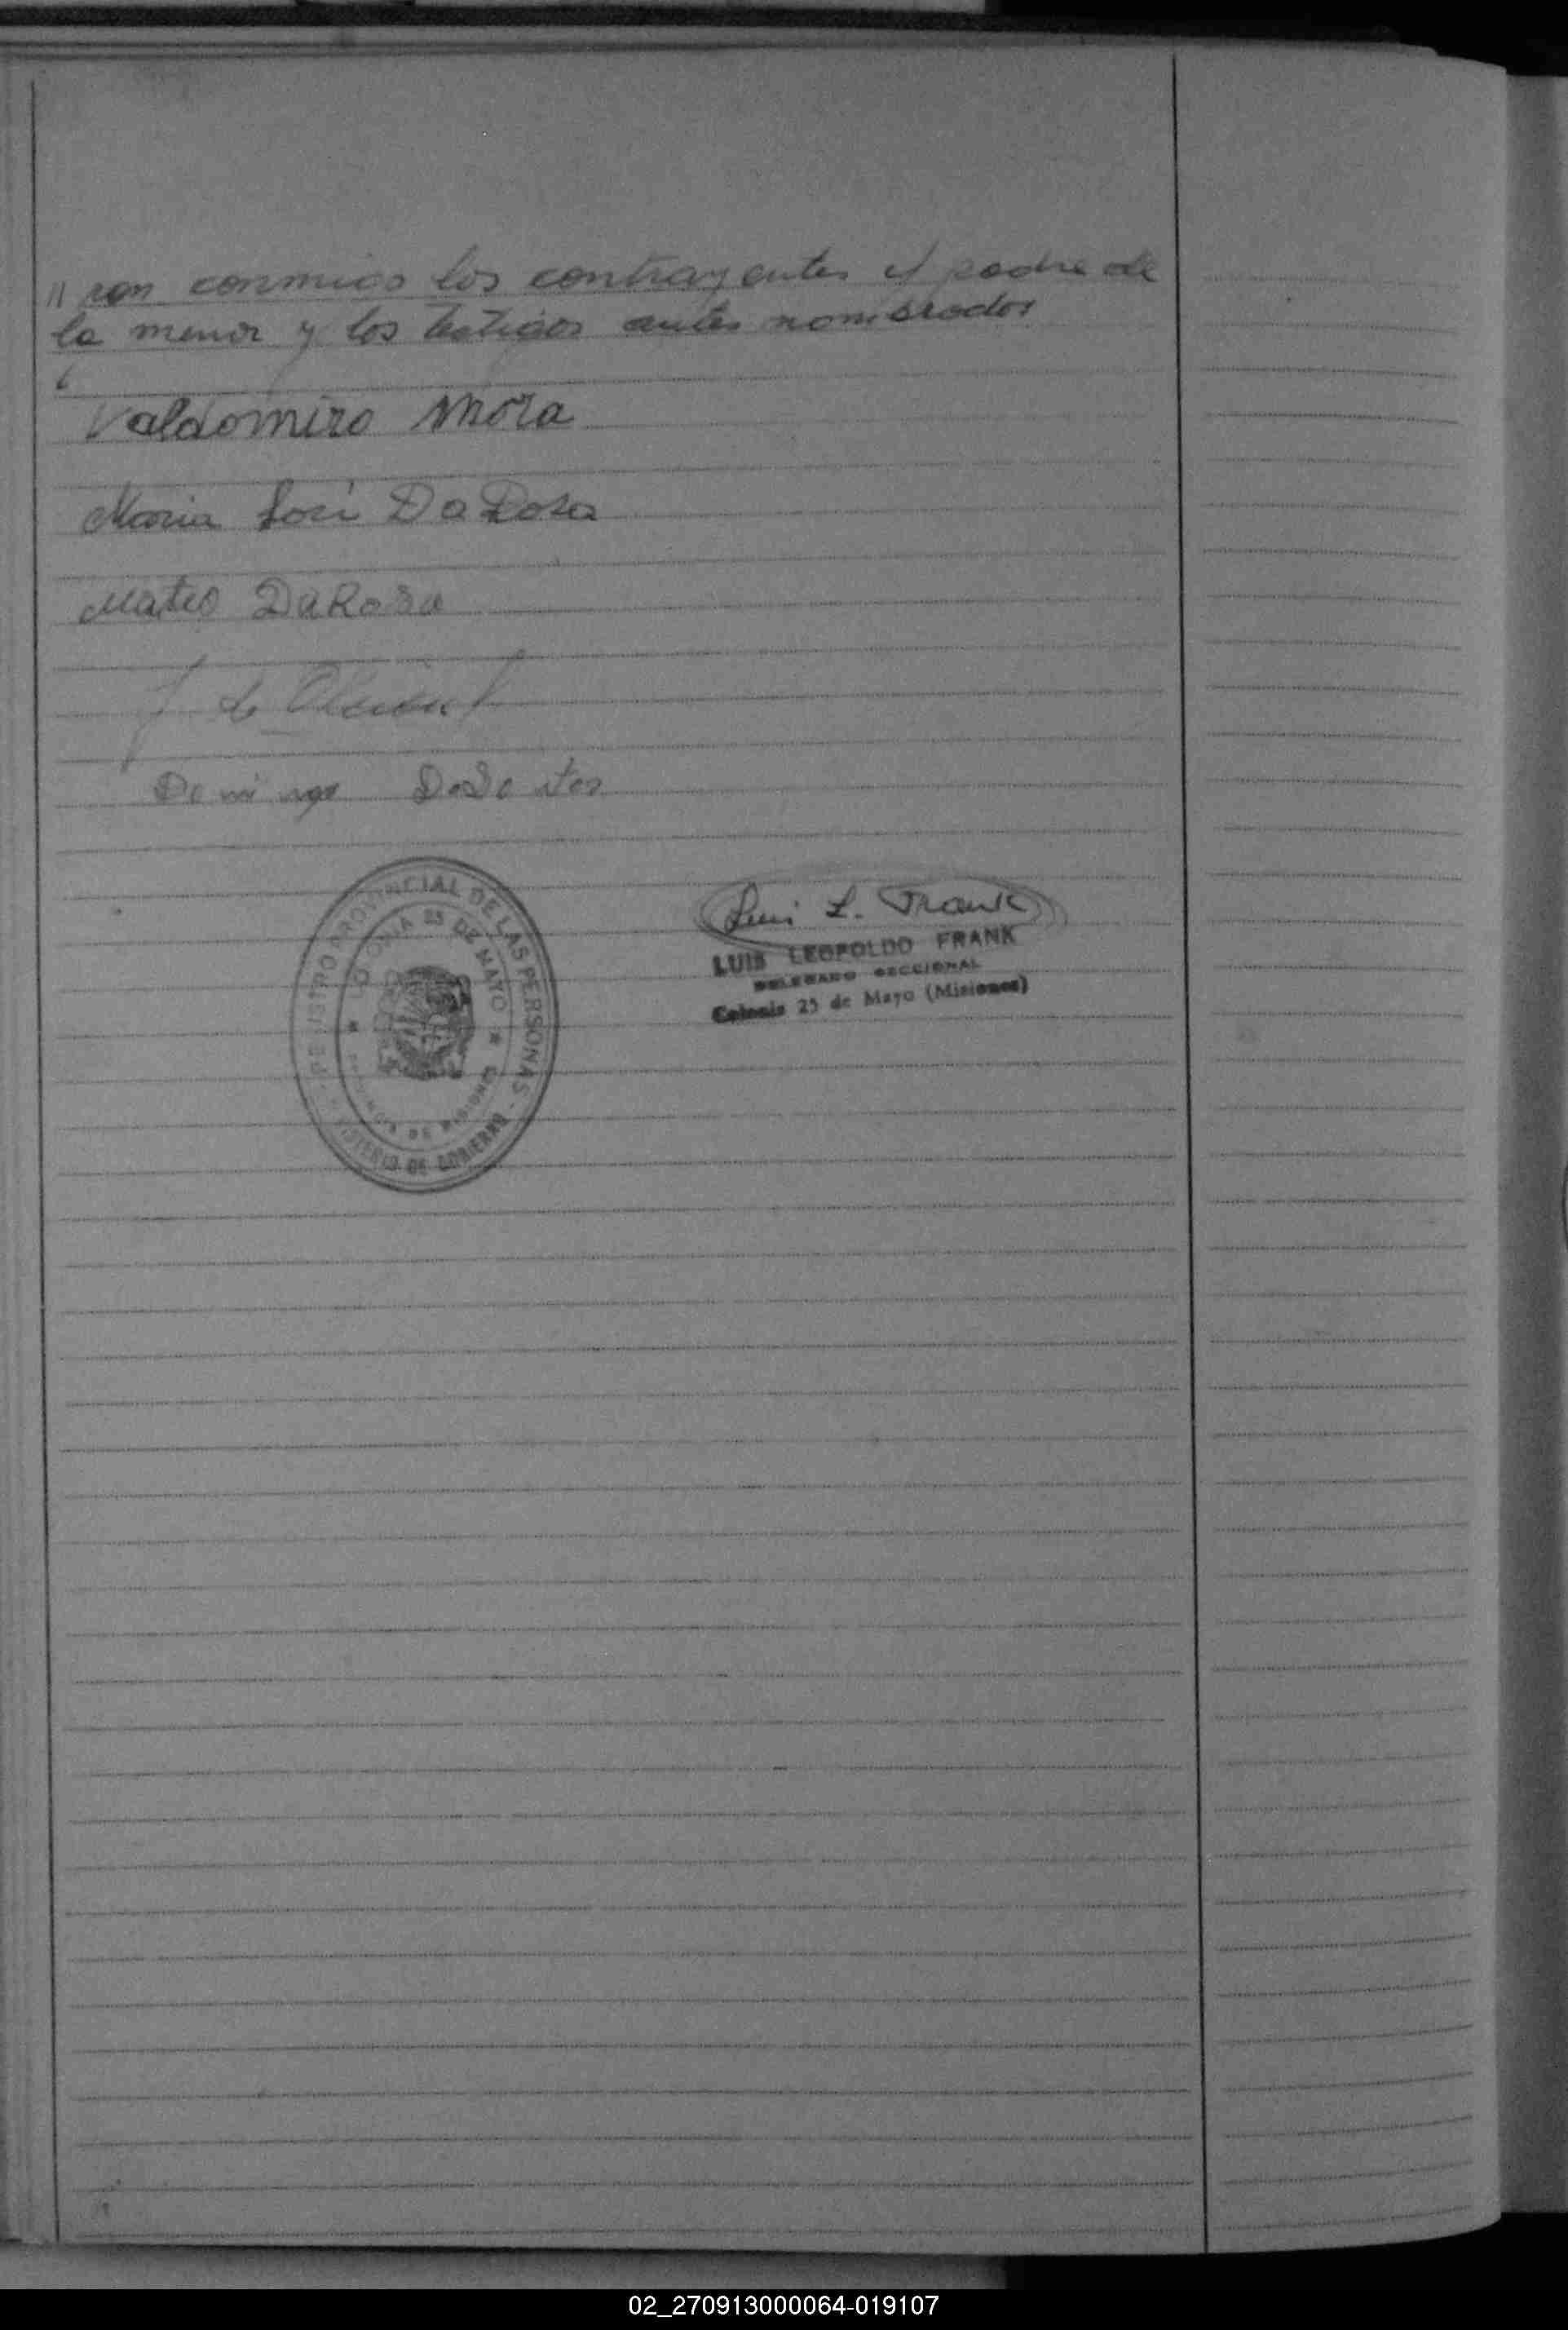 // ron conmigo los contrayentes el padre de
la menor y los testigos antes nombrados
Valdomiro Mora
Maria José Da Rosa
Mateo DaRosa
Domingo
REGISTRO PROVINCIAL DE LAS PERSONAS -
MINISTERIO DE GOBIERNO
COLONIA 25 DE MAYO
PROVINCIA DE MISIONES
Luis L. Frank
LUIS LEOPOLDO FRANK
DELEGADO SECCIONAL
Colonia 25 de Mayo (Misiones)
02_270913000064-019107